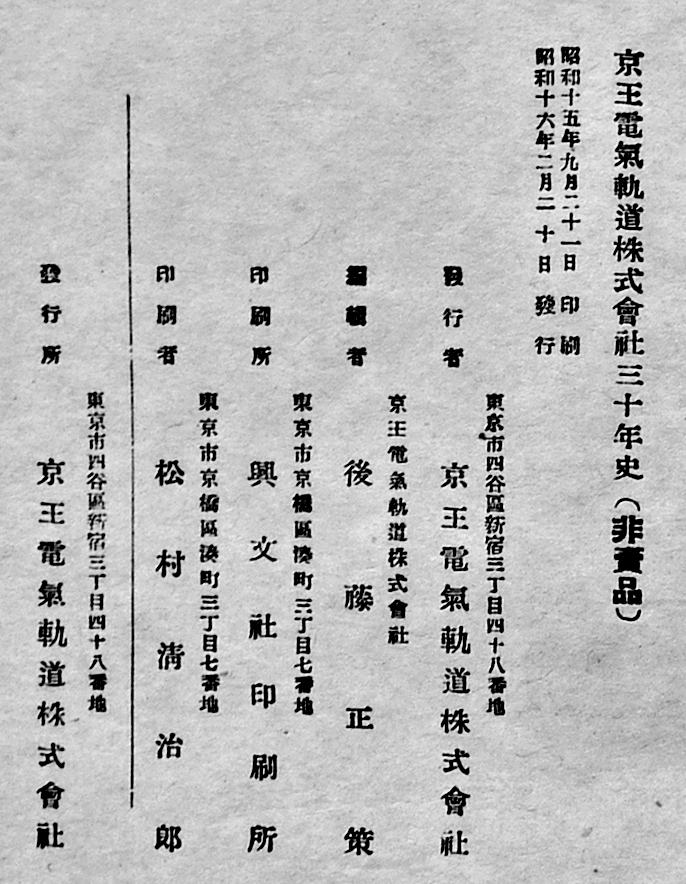 京王電氣軌道株式會社三十年史（非賣品）
昭和十五年九月二十一日印刷
昭和十六年二月二十日發行
東京市四谷區新宿三丁目四十八番地
發行者 京王電氣軌道株式會社
京王電氣軌道株式會社
編輯者 後藤正策
東京市京橋區湊町三丁目七番地
印刷所 興文社印刷所
東京市京橋區湊町三丁目七番地
印刷者 松村淸治郎
東京市四谷區新宿三丁目四十八番地
發行所 京王電氣軌道株式會社